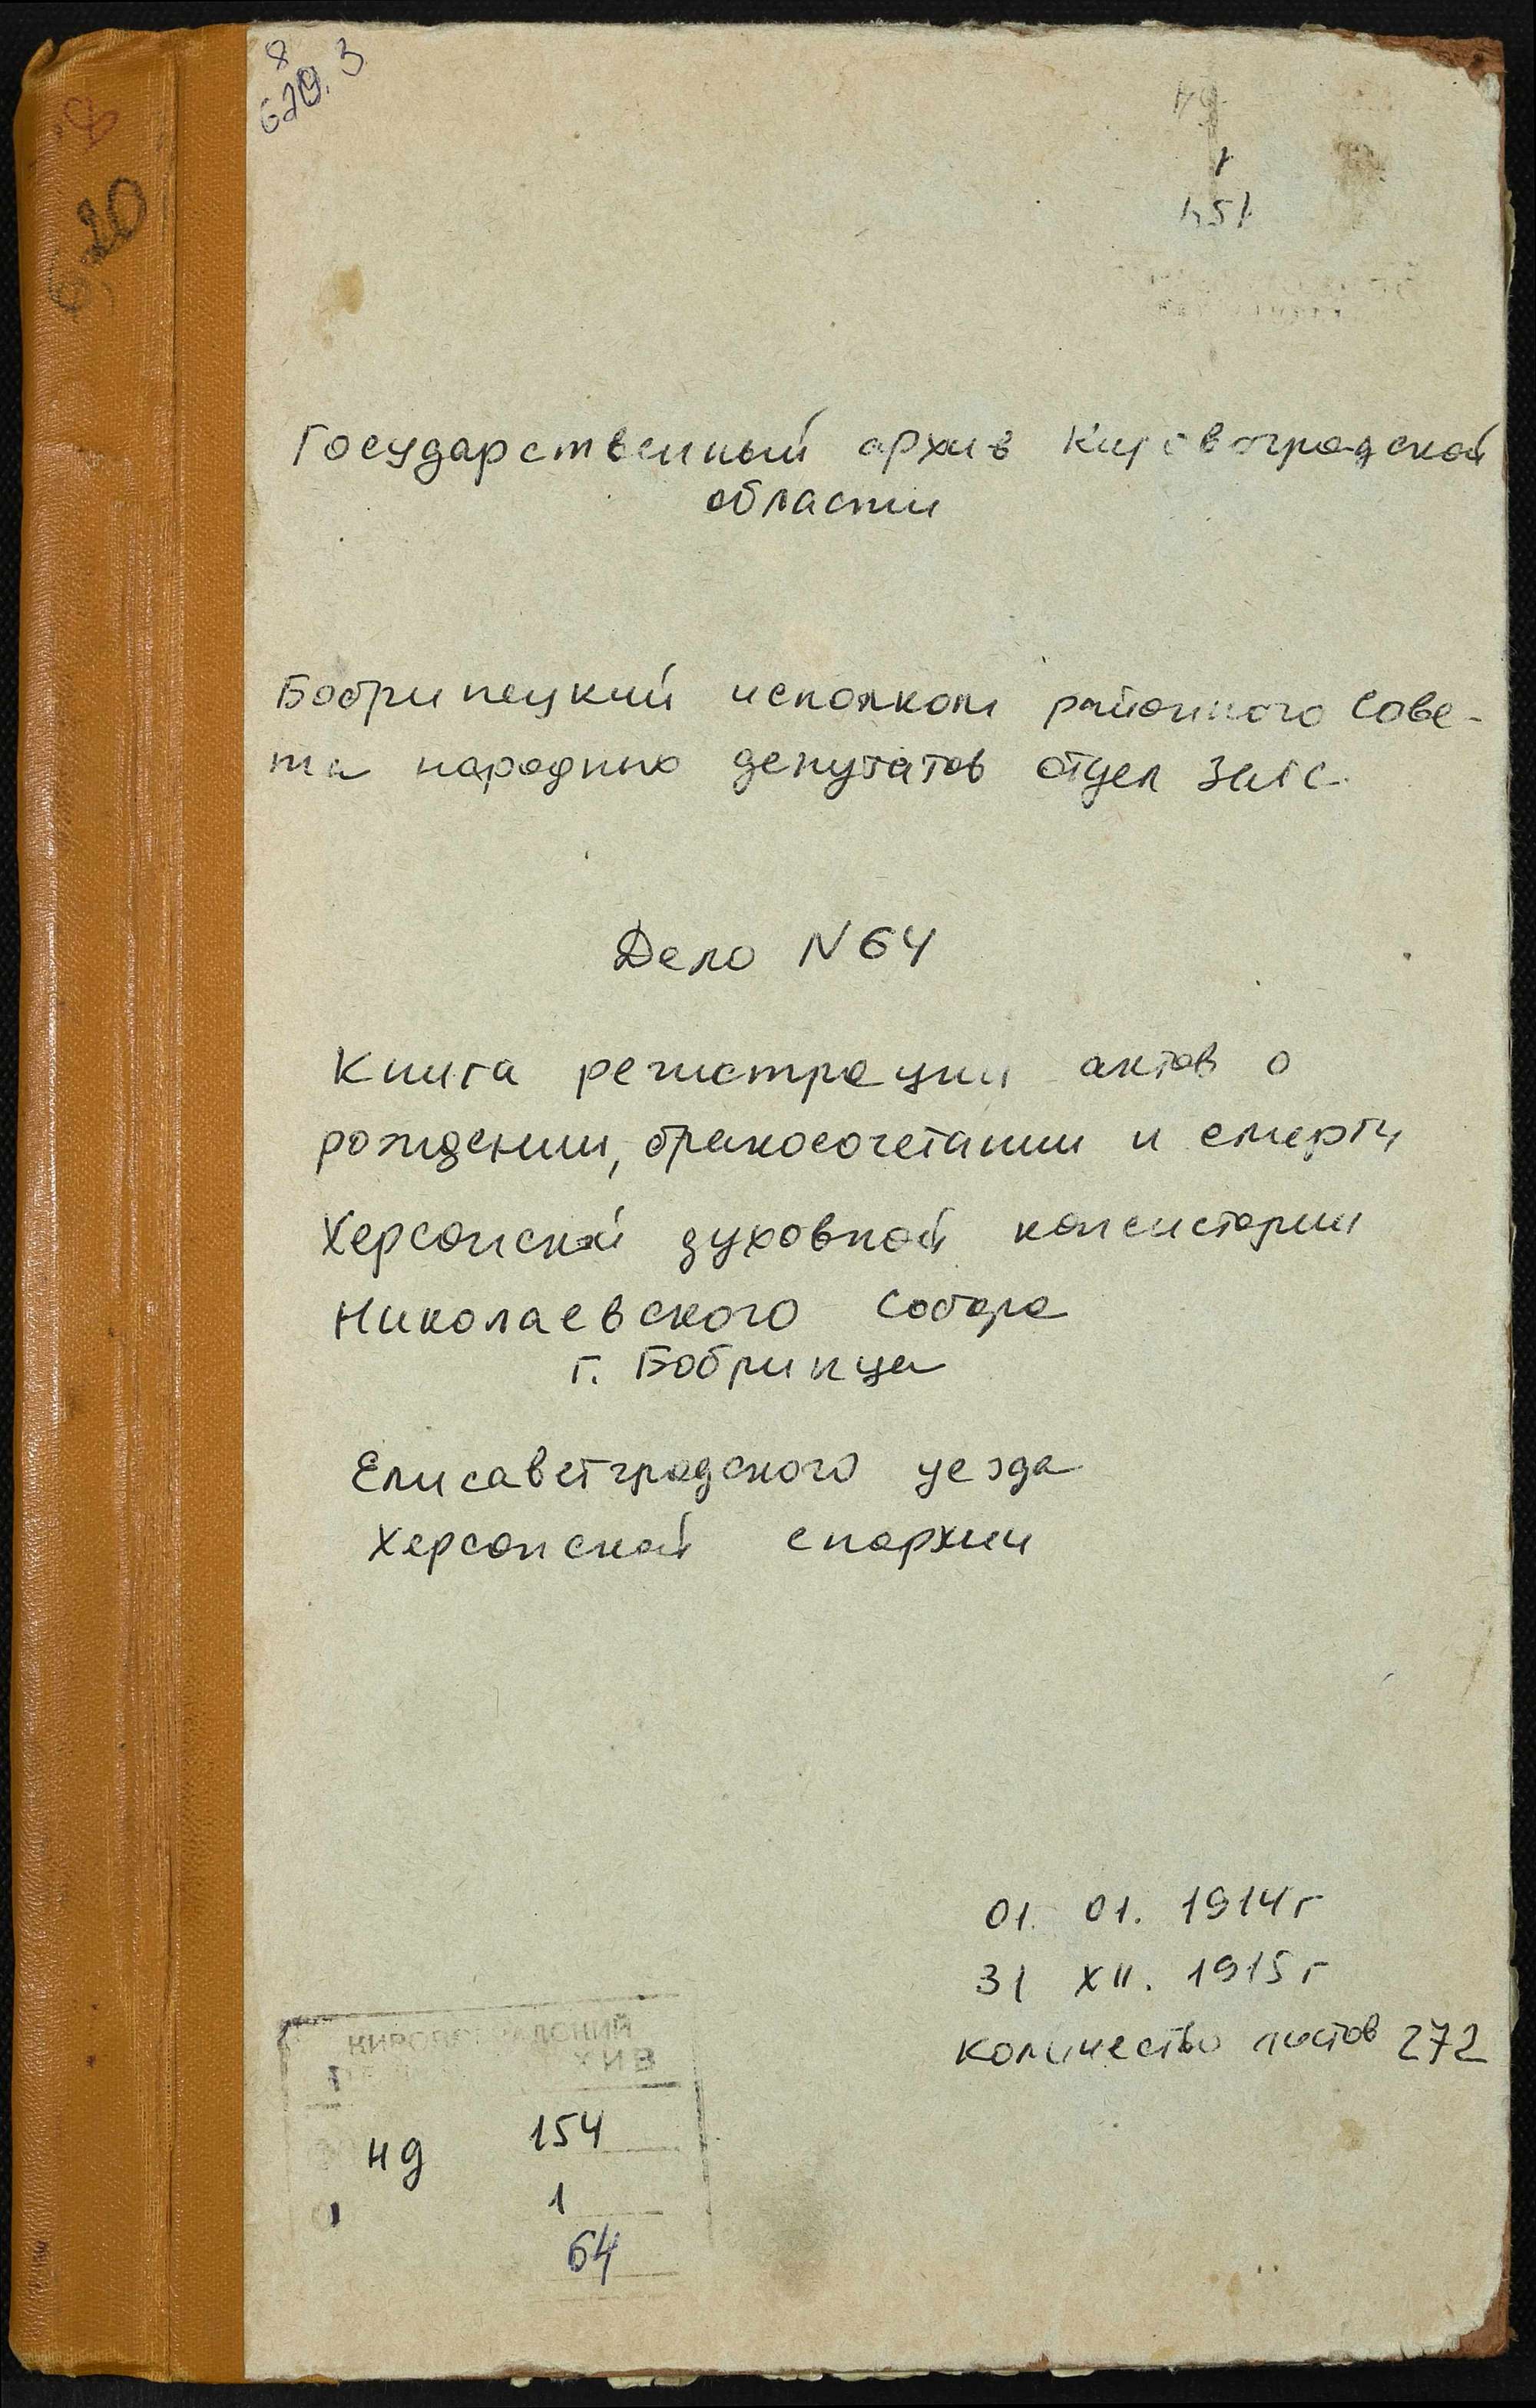 8
620. 3
620
64
1
154
Государственный архив Кировоградской
области
Бобринецкий исполком районного Сове-
та народных депутатов отдел ЗАГС
Дело N 64
Книга регистрации актов о
рождении, бракосочетании и смерти
Херсонской духовной консистории
Николаевского Собора
г. Бобринца
Елисаветградского уезда
Херсонской епархии
01. 01. 1914 г
31 XII. 1915 г
количество листов 272
КИРОВОГРАДСКИЙ
АРХИВ
НД 154
1
64